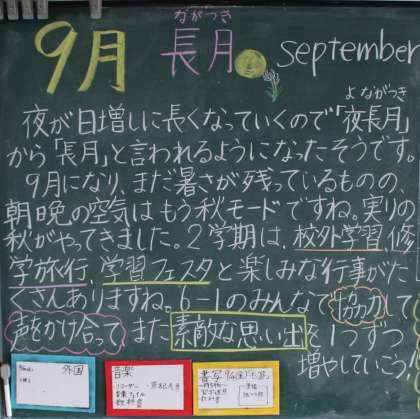 ながつき
9月 長月 September
よながつき
夜が日増しに長くなっていくので「夜長月」
から「長月」と言われるようになったそうです。
9月になり、まだ暑さが残っているものの、
朝晩の空気はもう秋モードですね。実りの
秋がやってきました。2学期は、校外学習、修
学旅行、学習フェスタと楽しみな行事がた
くさんありますね。6-1のみんなで協力して
声をかけ合ってまた素敵な思い出を1つずつ
増やしていこう!
外国
音楽
リコーダー
教科書
書写